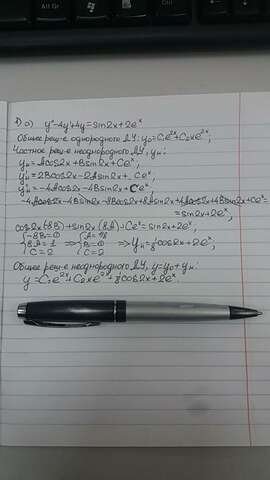 1) а) y''-4y'+4y=sin2x+2eˣ
Общее реш-е однородного ДУ: y₀=C₁e²ˣ+C₂xe²ˣ;
Частное реш-е неоднородного ДУ, yн:
yн=Acos2x+Bsin2x+Ceˣ,
y'н=2Bcos2x-2Asin2x+Ceˣ,
y''н=-4Acos2x-4Bsin2x+Ceˣ,
-4Acos2x-4Bsin2x-8Bcos2x+8Asin2x+4Acos2x+4Bsin2x+Ceˣ=
=sin2x+2eˣ,
cos2x(-8B)+sin2x(8A)+Ceˣ=sin2x+2eˣ,
{-8B=0 {A=1/8
{8A=1 ⇒ {B=0 ⇒ yн=1/8cos2x+2eˣ;
{C=2 {C=2
Общее реш-е неоднородного ДУ, y=y₀+yн:
y=C₁e²ˣ+C₂xe²ˣ+1/8cos2x+2eˣ.